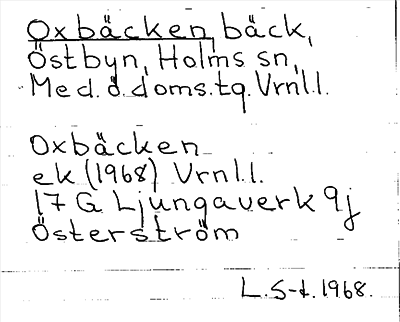 Oxbäcken, bäck,
Östbyn, Holms sn,
Med. ö. doms. tg. Vrnl.l.
Oxbäcken
ek (1968) Vrnl.l.
17 G Ljungaverk 9j
Österström
L. S-d. 1968.